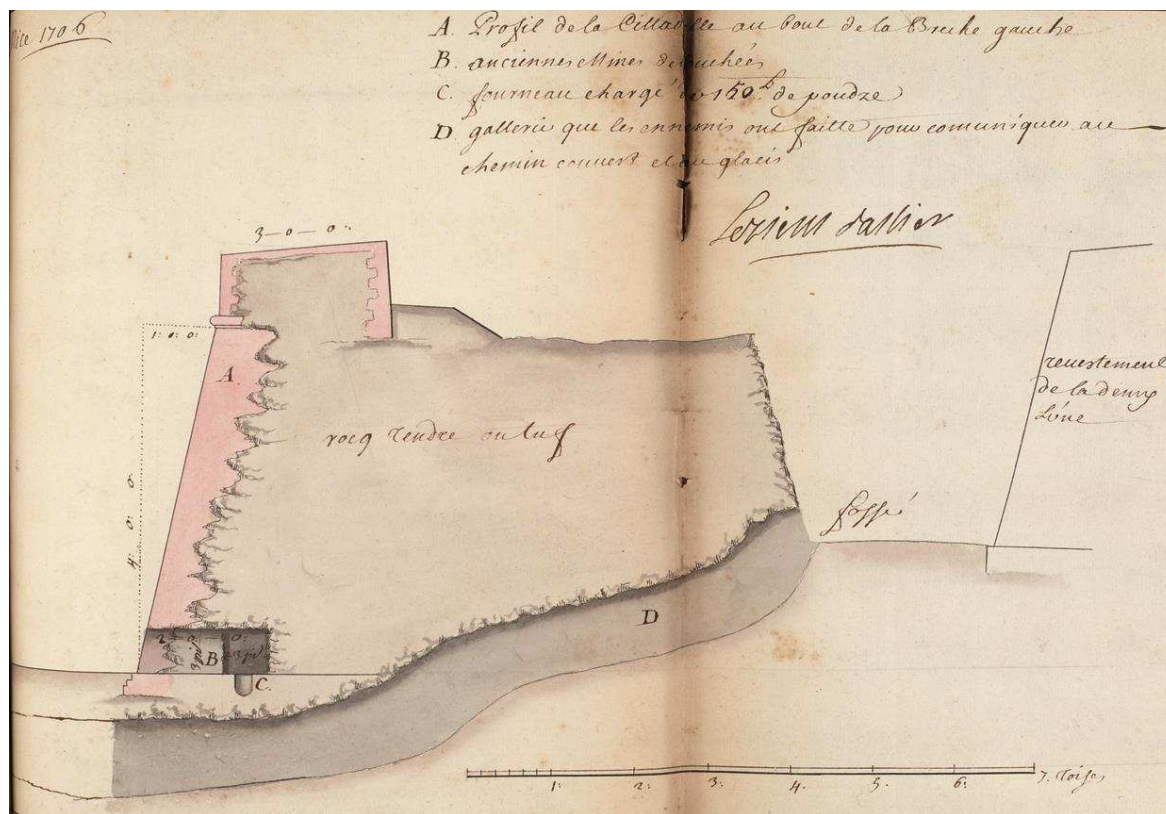 Nice 1706
A. Profil de la Cittadelle au bout de la Breche gauche
B. anciennes Mines débouchées
C. fourneau chargé de 150 l. de poudre
D gallerie que les ennemis ont faitte pour comuniquer au
chemin couvert et au glacis
3-0-0:
1: 0: 0:
A
4: 0: 0
rocq tendre ou tuf
revestement
de la demy
Lúne
fossé
2-0-0:
3 pi
B
3 pi
C.
D
1: 2: 3: 4. 5. 6: 7. Toises